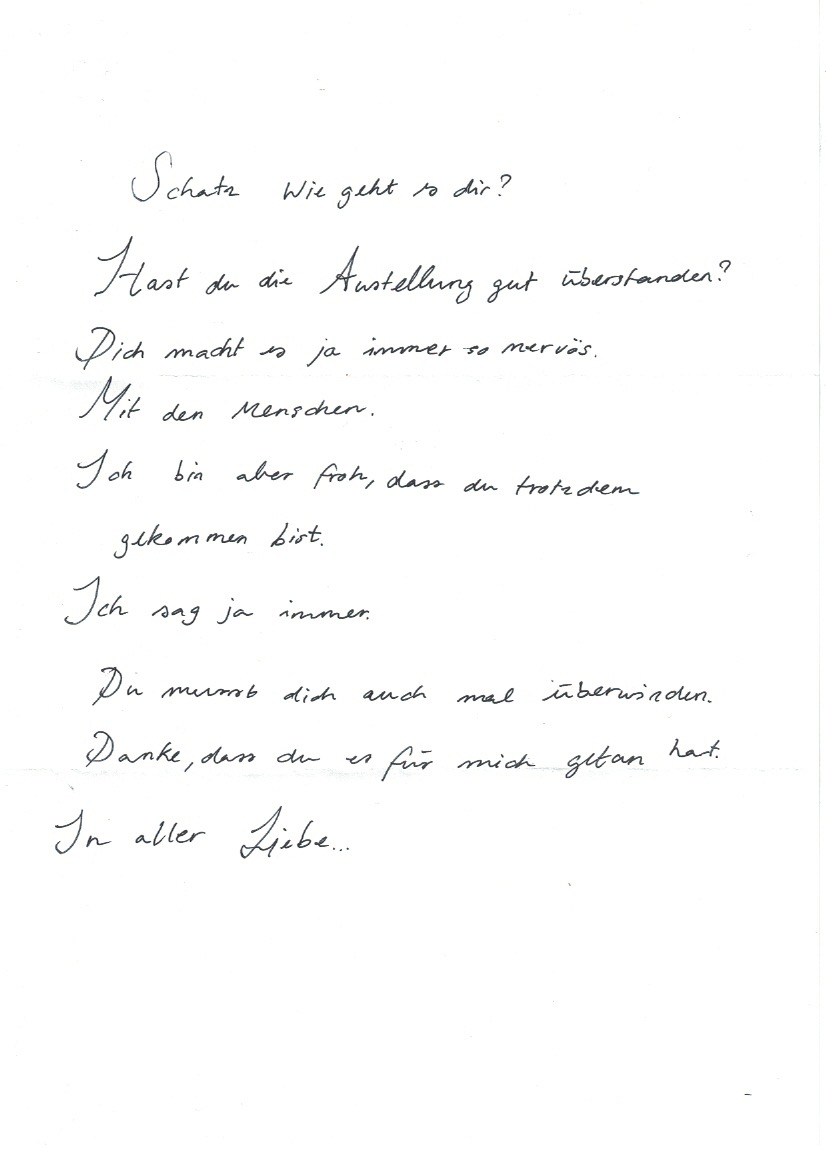 Schatz Wie geht es dir?
Hast du die Austellung gut überstanden?
Dich macht es ja immer so nervös.
Mit den Menschen.
Ich bin aber froh, dass du trotzdem
gekommen bist.
Ich sag ja immer.
Du musst dich auch mal überwinden.
Danke, dass du es für mich getan hat.
In aller Liebe...